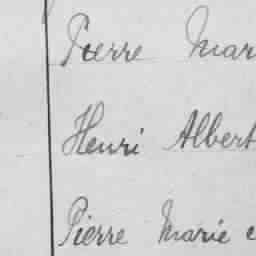 Pierre Mar
Henri Albert
Pierre Marie